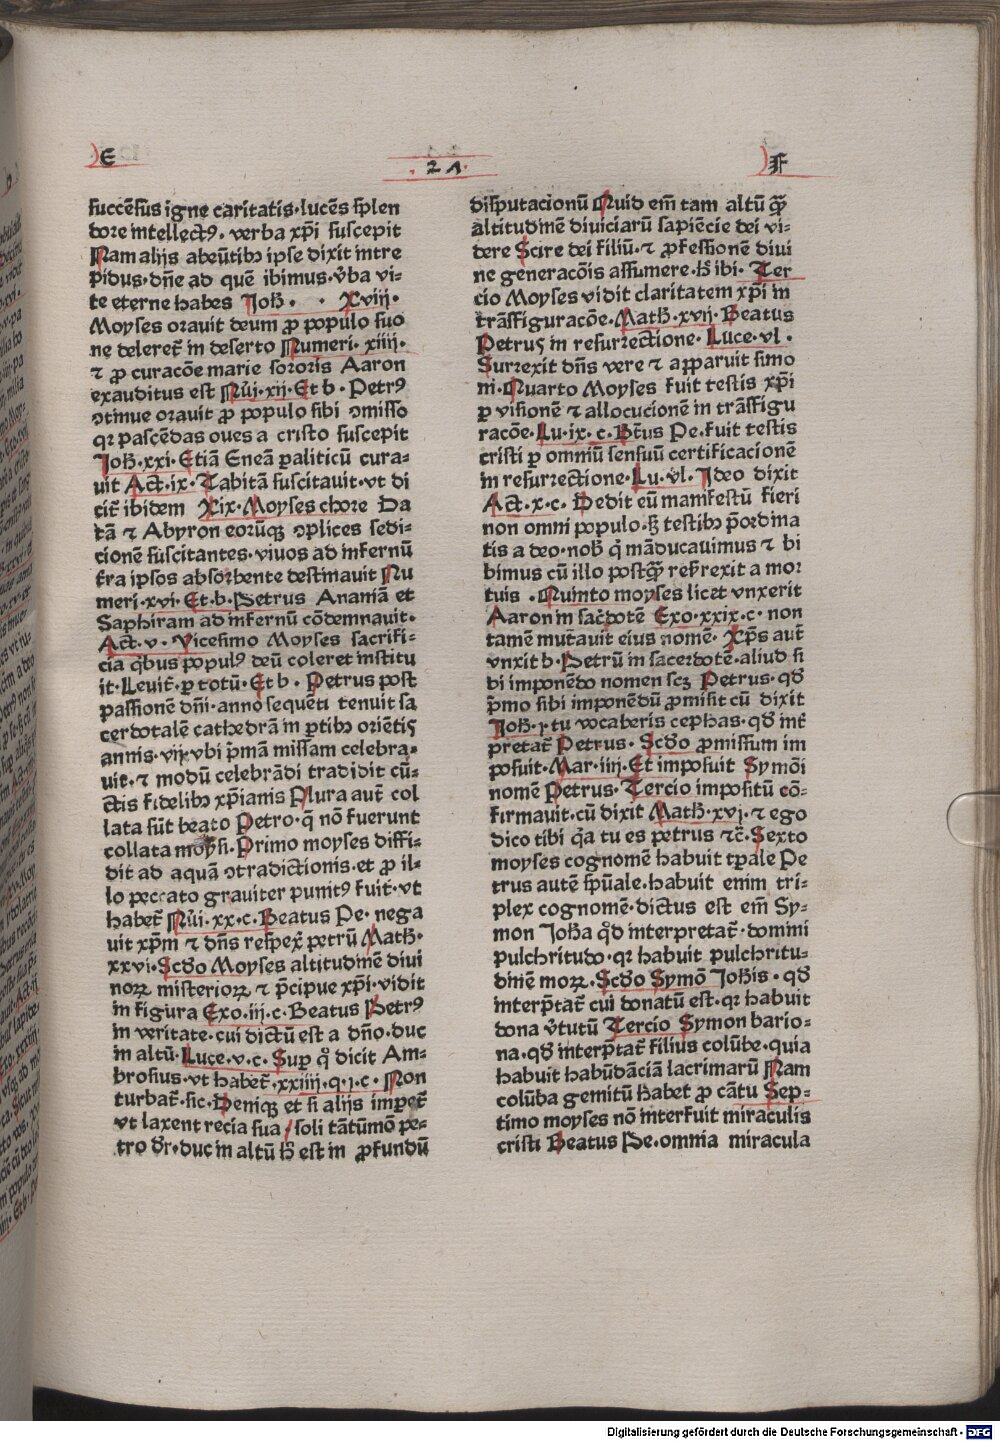 E
21
F
succēsus igne caritatis·lucēs splen
dore intellectꝰ · verba xp̄i suscepit
Nam alijs abeūtibꝫ ipse dixit intre
pidus·dn̄e ad quē ibimus·v̄ba vi-
te eterne habes Joh̄ · · Xviij·
Moyses orauit deum ꝓ populo suo
ne deleret̄ in deserto Numeri·xiiij·
⁊ ꝓ curacōe marie sororis Aaron
exauditus est Nūi·xij·Et b·Petrꝰ
ꝯtinue orauit ꝓ populo sibi ꝯmisso
qꝛ pascēdas oues a cristo suscepit
Joh̄·xxi·Etiā Eneā ꝑaliticū cura-
uit Act̄·ix·Tabitā suscitauit·vt di
cit̄ ibidem Xix·Moyses chore Da
tā ⁊ Abyron eorūqꝫ ꝯplices sedi-
cionē suscitantes·viuos ad infernū
t̄ra ipsos absorbente destinauit Nu
meri·xvi·Et·b·Petrus Ananiā et
Saphiram ad infernū cōdemnauit·
Act̄·v·Vicesimo Moyses sacrifi-
cia qͥbus populꝰ deū coleret institu
it·Leuit̄·ꝑ totū·Et b · Petrus post
passionē dn̄i·anno sequēti tenuit sa
cerdotalē cathedrā in ꝑtibꝫ oriētis
annis·vij·vbi p̄mā missam celebra-
uit·⁊ modū celebrādi tradidit cū-
ctis fidelibꝫ xp̄ianis Plura aut̄ col
lata sūt beato Petro·q̄ nō fuerunt
collata moysi·Primo moyses diffi-
dit ad aquā ꝯtradictionis·et ꝓ il-
lo peccato grauiter punitꝰ fuit·vt
habet̄ Nūi·xx·c·Beatus Pe·nega
uit xp̄m ⁊ dn̄s respex̄ petrū Math̄·
xxvi·Scd̄o Moyses altitudinē diui
noꝝ misterioꝝ ⁊ p̄cipue xp̄i·vidit
in figura Exo·iij·c·Beatus Petrꝰ
in veritate·cui dictū est a dn̄o·duc
in altū·Luce·v·c·Suꝑ qͦ dicit Am-
brosius·vt habet̄·xxiiij·q·j·c·Non
turbat̄·sic·Deniqꝫ et si alijs imꝑet̄
vt laxent recia sua / soli tātūmō pe-
tro dr̄·duc in altū h̄ est in ꝓfundū
disputacionū Quid em̄ tam altū qͣꝫ
altitudinē diuiciarū sapiēcie dei vi-
dere Scire dei filiū·⁊ ꝓfessionē diui
ne generacōis assumere·h̄ ibi·Ter
cio Moyses vidit claritatem xp̄i in
trāsfiguracōe·Math̄·xvij·Beatus
Petrus in resurrectione·Luce·vl·
Surrexit dn̄s vere ⁊ apparuit simo
ni·Quarto Moyses fuit testis xp̄i
ꝑ visionē ⁊ allocucionē in trāsfigu
racōe·Lu·ix·c·Bt̄us Pe·fuit testis
cristi ꝑ omniū sensuū certificacionē
in resurrectione·Lu·vl·Ideo dixit
Act̄·x·c·Dedit eū manifestū fieri
non omni populo·sꝫ testibꝫ p̄ordina
tis a deo·nob̄ qͥ māducauimus ⁊ bi
bimus cū illo postqͣꝫ res̄rexit a mor
tuis·Quinto moyses licet vnxerit
Aaron in sac̄dotē Exo·xxix·c·non
tamē mutauit eius nomē·Xp̄s aut̄
vnxit b·Petrū in sacerdotē·aliud si
bi imponēdo nomen scꝫ Petrus·qd̄
p̄mo sibi imponēdū ꝓmisit cū dixit
Joh̄·j·tu vocaberis cephas·qd̄ int̄
pretat̄ Petrus·Scd̄o ꝓmissum im
posuit·Mar·iij·Et imposuit Symōi
nomē Petrus·Tercio impositū cō-
firmauit·cū dixit Math̄·xvj·⁊ ego
dico tibi qͥa tu es petrus ⁊c̄·Sexto
moyses cognomē habuit tꝑale Pe
trus autē sp̄uale·habuit enim tri-
plex cognomē·dictus est em̄ Sy-
mon Joh̄a qͦd interpretat̄·domini
pulchritudo·qꝛ habuit pulchritu-
dinē moꝝ·Scd̄o Symō Joh̄is·qd̄
interp̄tat̄ cui donatū est·qꝛ habuit
dona v̄tutū Tercio Symon bario-
na·qd̄ interp̄tat̄ filius colūbe·quia
habuit habūdāciā lacrimarū Nam
colūba gemitū habet ꝓ cātu Sep-
timo moyses nō interfuit miraculis
cristi Beatus Pe·omnia miracula
Digitalisierung gefördert durch die Deutsche Forschungsgemeinschaft - DFG